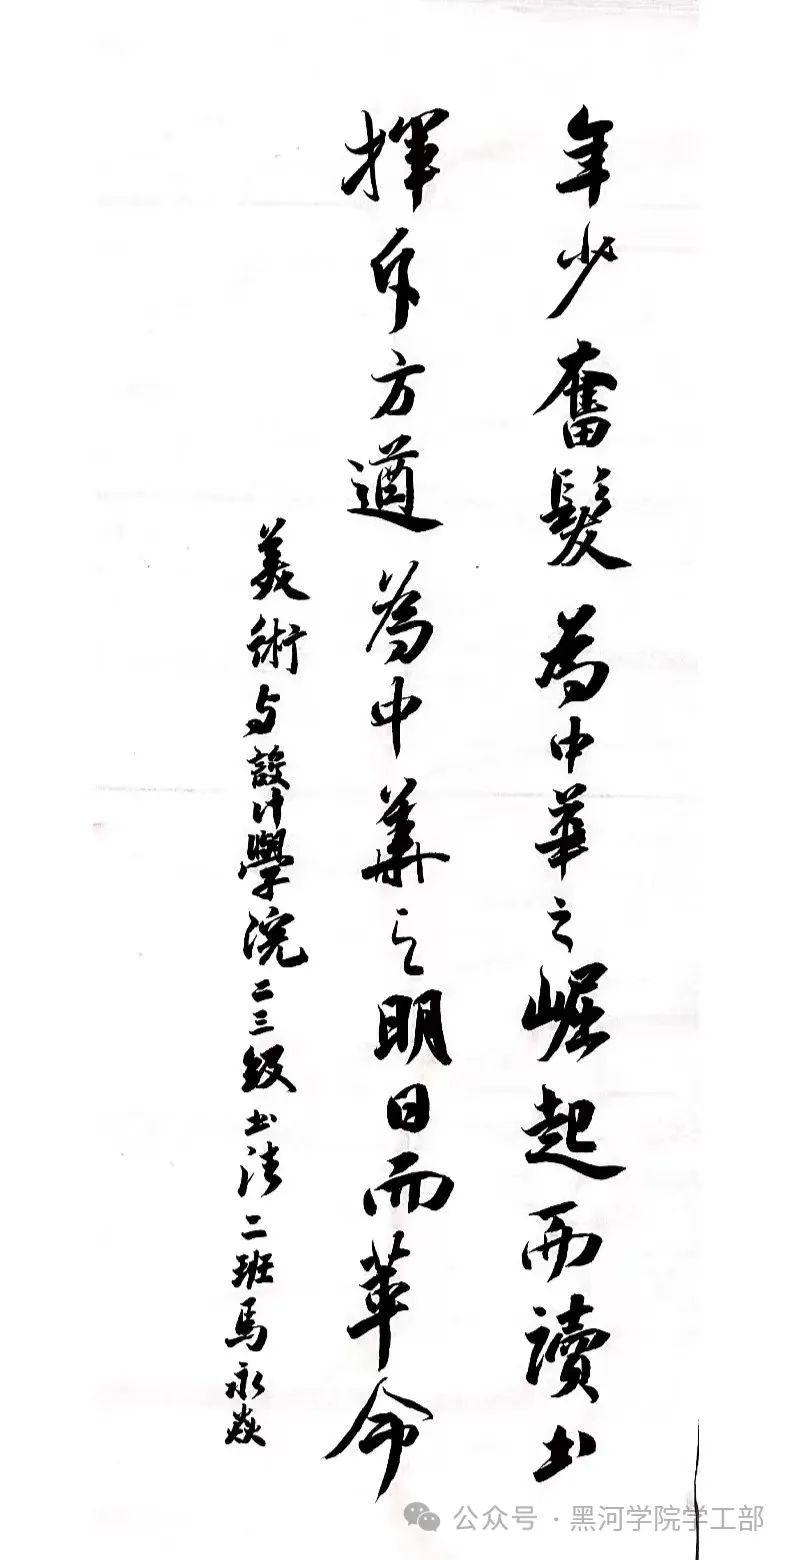 年少奮髮為中華之崛起而讀书
揮斥方遒為中華之明日而革命
美術与設計學院二三级书法二班馬永焱
公众号·黑河学院学工部